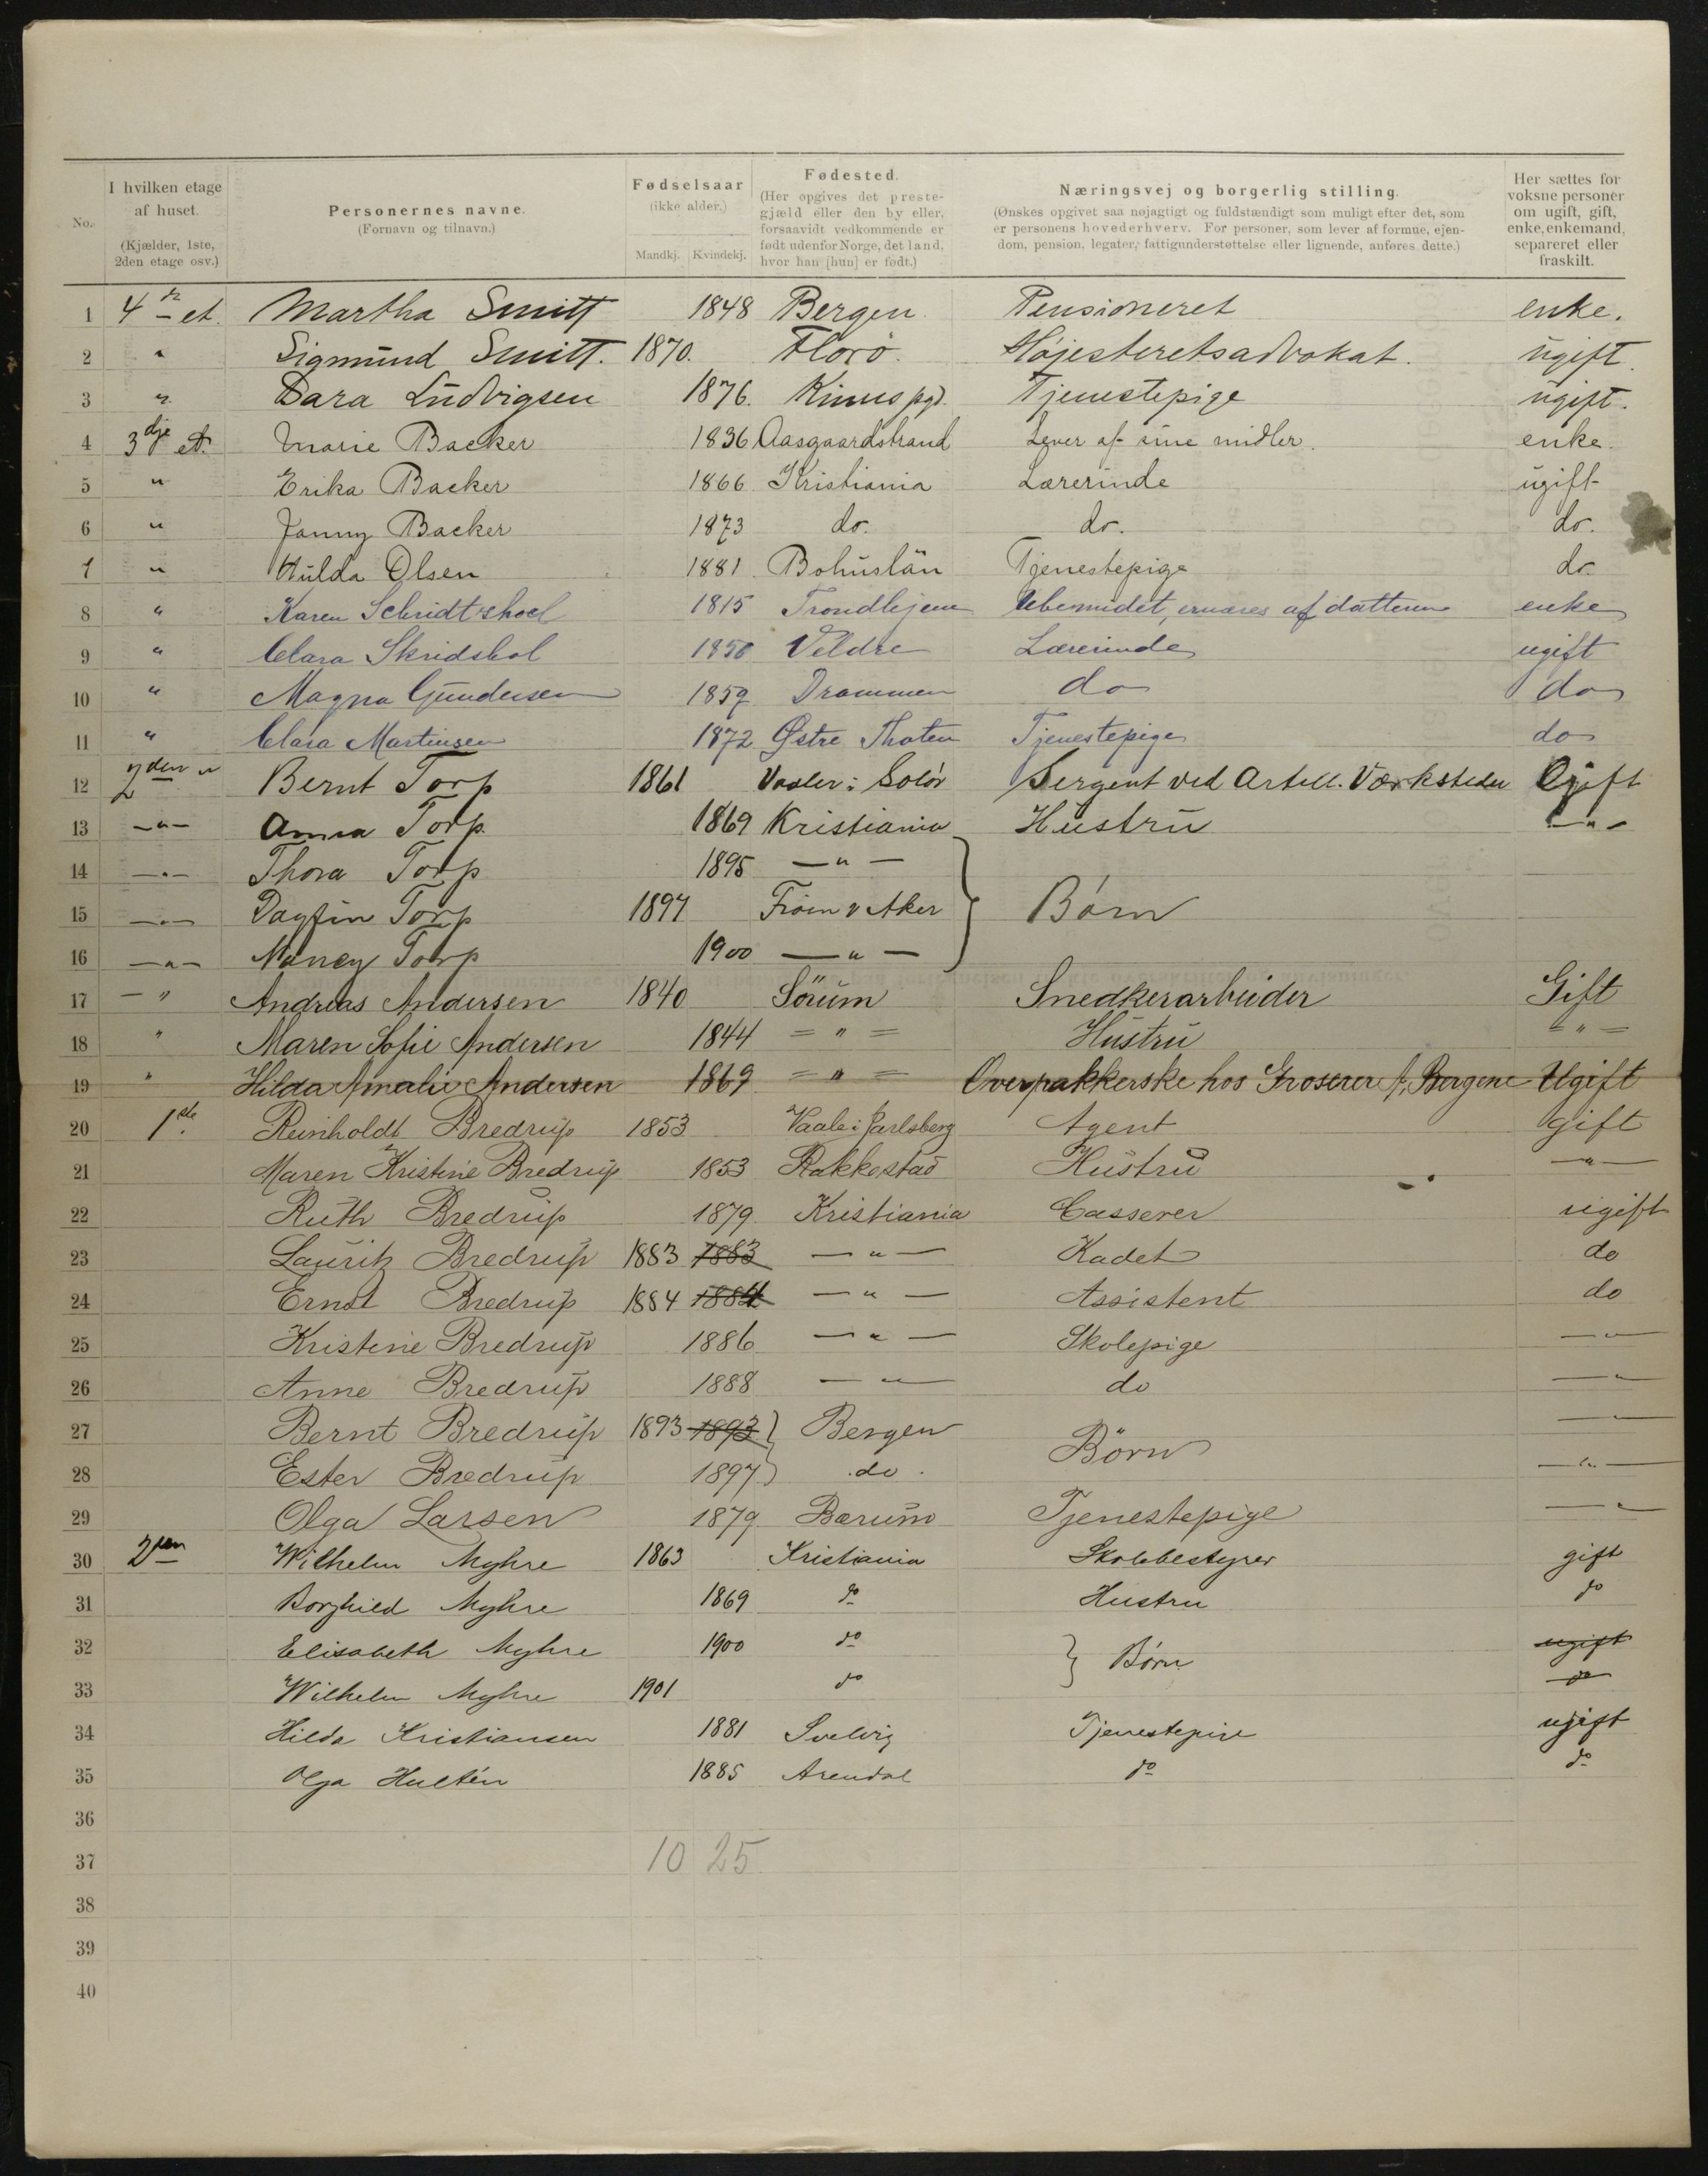 No.
I hvilken etage af huset. (Kjælder, 1ste, 2den etage osv.)
Personernes navne. (Fornavn og tilnavn.)
Fødselsaar (ikke alder.) Mandkj. Kvindekj.
Fødested. (Her opgives det prestegjæld eller den by eller, forsaavidt vedkommende er født udenfor Norge, det land, hvor han [hun] er født.)
Næringsvej og borgerlig stilling. (Ønskes opgivet saa nøjagtigt og fuldstændigt som muligt efter det, som er personens hovederhverv. For personer, som lever af formue, ejendom, pension, legater, fattigunderstøttelse eller lignende, anføres dette.)
Her sættes for voksne personer om ugift, gift, enke, enkemand, separeret eller fraskilt.
1 4 et. Martha Smitt 1848 Bergen Pensioneret enke.
2 " Sigmund Smitt. 1870. Florö. Højesteretsadvokat. ugift.
3 " Sara Ludvigsen 1876. Kinns pgd. Tjenestepige ugift.
4 3dje et. Marie Backer 1836 Aasgaardstrand Lever af sine midler. enke.
5 " Erika Backer 1866 Kristiania Lærerinde ugift
6 " Fanny Backer 1873 do. do. do.
7 " Hulda Olsen 1881 Bohuslän Tjenestepige do.
8 " Karen 1815 Trondhjem Ubemidlet, ernæres af datteren enke
9 " Clara Skridshol 1850 Veldre Lærerinde ugift
10 " Magna Gundersen 1859 Drammen do do
11 " Clara Martinsen 1872 Østre Thoten Tjenestepige do
12 2den " Bernt Torp 1861 Vaaler i Solør Sergent ved Artill. Værksteder Gift
13 -"- Anna Torp 1869 Kristiania Hustru -"-
14 -"- Thora Torp 1895 -"-
15 -"- Dagfin Torp 1897 Frøen v Aker } Börn
16 -"- Nancy Torp 1900 -"-
17 -" Andreas Andersen 1840 Sörum Snedkerarbeider Gift
18 " Maren Sofie Andersen 1844 ="= Hustru ="=
19 " Hilda Amalie Andersen 1869 ="= Overpakkerske hos Groserer A, Bergene Ugift
20 1ste. Reinholdt Bredrup 1853 Vaale i Jarlsberg Agent gift
21 Maren Kristine Bredrup 1853 Rakkestad Hustru -"-
22 Ruth Bredrup 1879 Kristiania Casserer ugift
23 Lauritz Bredrup 1883 1883 -"- Kadet do
24 Ernst Bredrup 1884 1884 -"- Assistent do
25 Kristine Bredrup 1886 -"- Skolepige -"-
26 Anne Bredrup 1888 -"- do -"-
27 Bernt Bredrup 1893 1893 } Bergen Börn -"-
28 Ester Bredrup 1897 do. -"-
29 Olga Larsen 1879 Bærum Tjenestepige -"-
30 2den Wilhelm Myhre 1863 Kristiania Skolebestyrer gift
31 Borghild Myhre 1869 do Hustru do
32 Elisabeth Myhre 1900 do } Børn ugift
33 Wilhelm Myhre 1901 do do
34 Hilda Kristiansen 1881 Svelvig Tjenestepige ugift
35 Olga Hultén 1885 Arendal do do
36
37 10 25
38
39
40